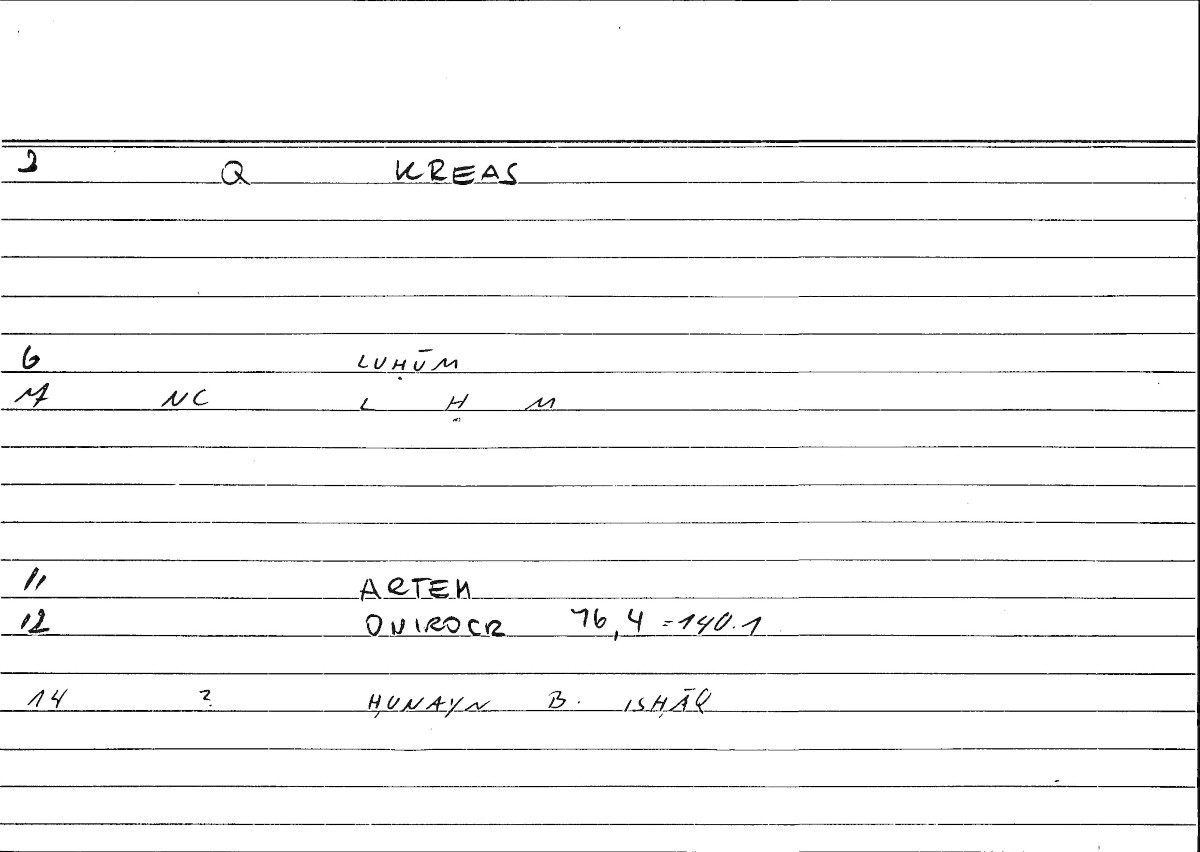 3 Q KREAS
6 LUḤŪM
7 NC L Ḥ M
11 ARTEM
12 ONIROCR 76,4 =140.1
14 ? ḤUNAYN B. ISḤĀQ